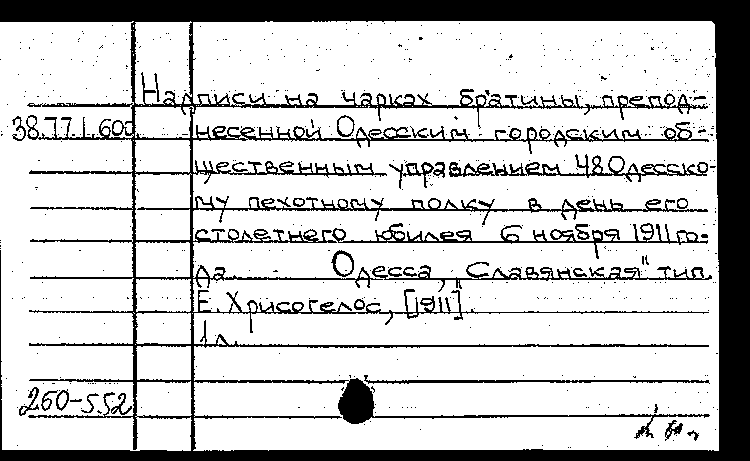 Надписи на чарках братины, препод-
38.77.1.600.
несенной Одесским городским об-
щественным управлением 48 Одесско-
му пехотному полку в день его
столетнего юбилея 6 ноября 1911 го-
да. Одесса, „Славянская" тип.
Е. Хрисогелос, [1911].
1 л.
260-552